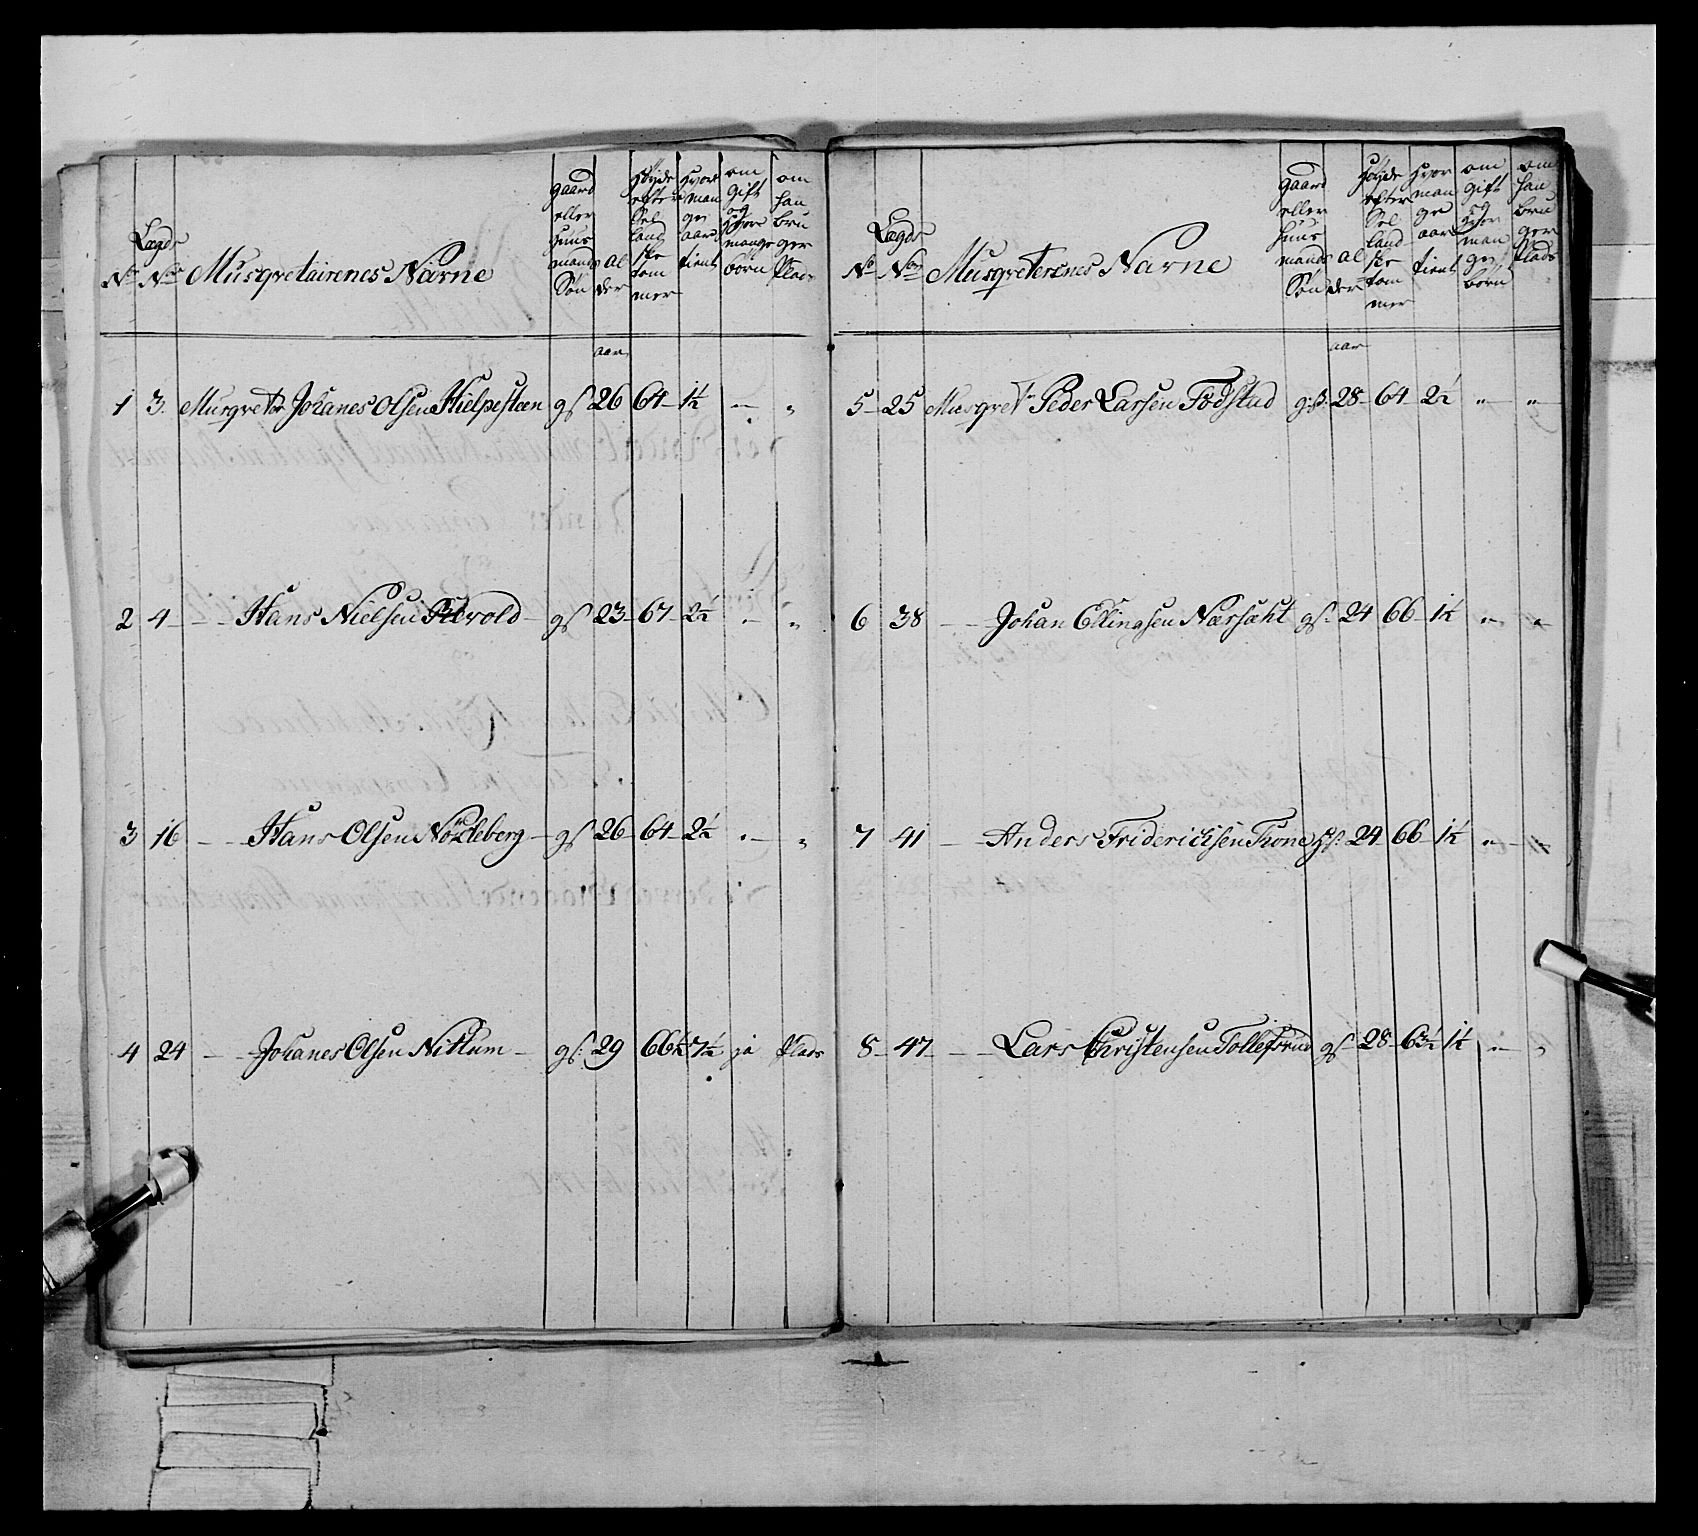 Lægds
No No Musqvetairenes Navne
gaard eller Huusmands Søn
alder
Høyde efter Sellandske tommer
Hvor mange aar tient
om Gift og Hvor mange børn
om han bruger Plads
aar
1 3. Musqvetr Johanes Olsen Hielpesteen gs 26 64 1½ — "
2 4 — — Hans Nielsen Alvold gs 23 67 2½ — "
3 16 — — Hans Olsen Nördeberg gs 26 64 2½ — "
4 24 — — Johanes Olsen Nittum gs: 29 66½ 7½ ja Plads
Lægds
No No Musqveterenes Navne
gaard eller huusmands Søn
alder
Høyde efter Sellandske tommer
Hvor mange aar tient
om gift og Hvor mange børn
om han bruger Plads
aar
5 25 Musqvet Peder Larsen Födstad gs: 28 64 2½ " "
6 38 — — Johan Ellingsen Nærsæht gs: 24 66 1½ " "
7 41 — — Anders Friderichsen Trone gs: 24 66 1½ " "
8 47 — — Lars Christensen Tollefsrud gs 28 63½ 1½ " "